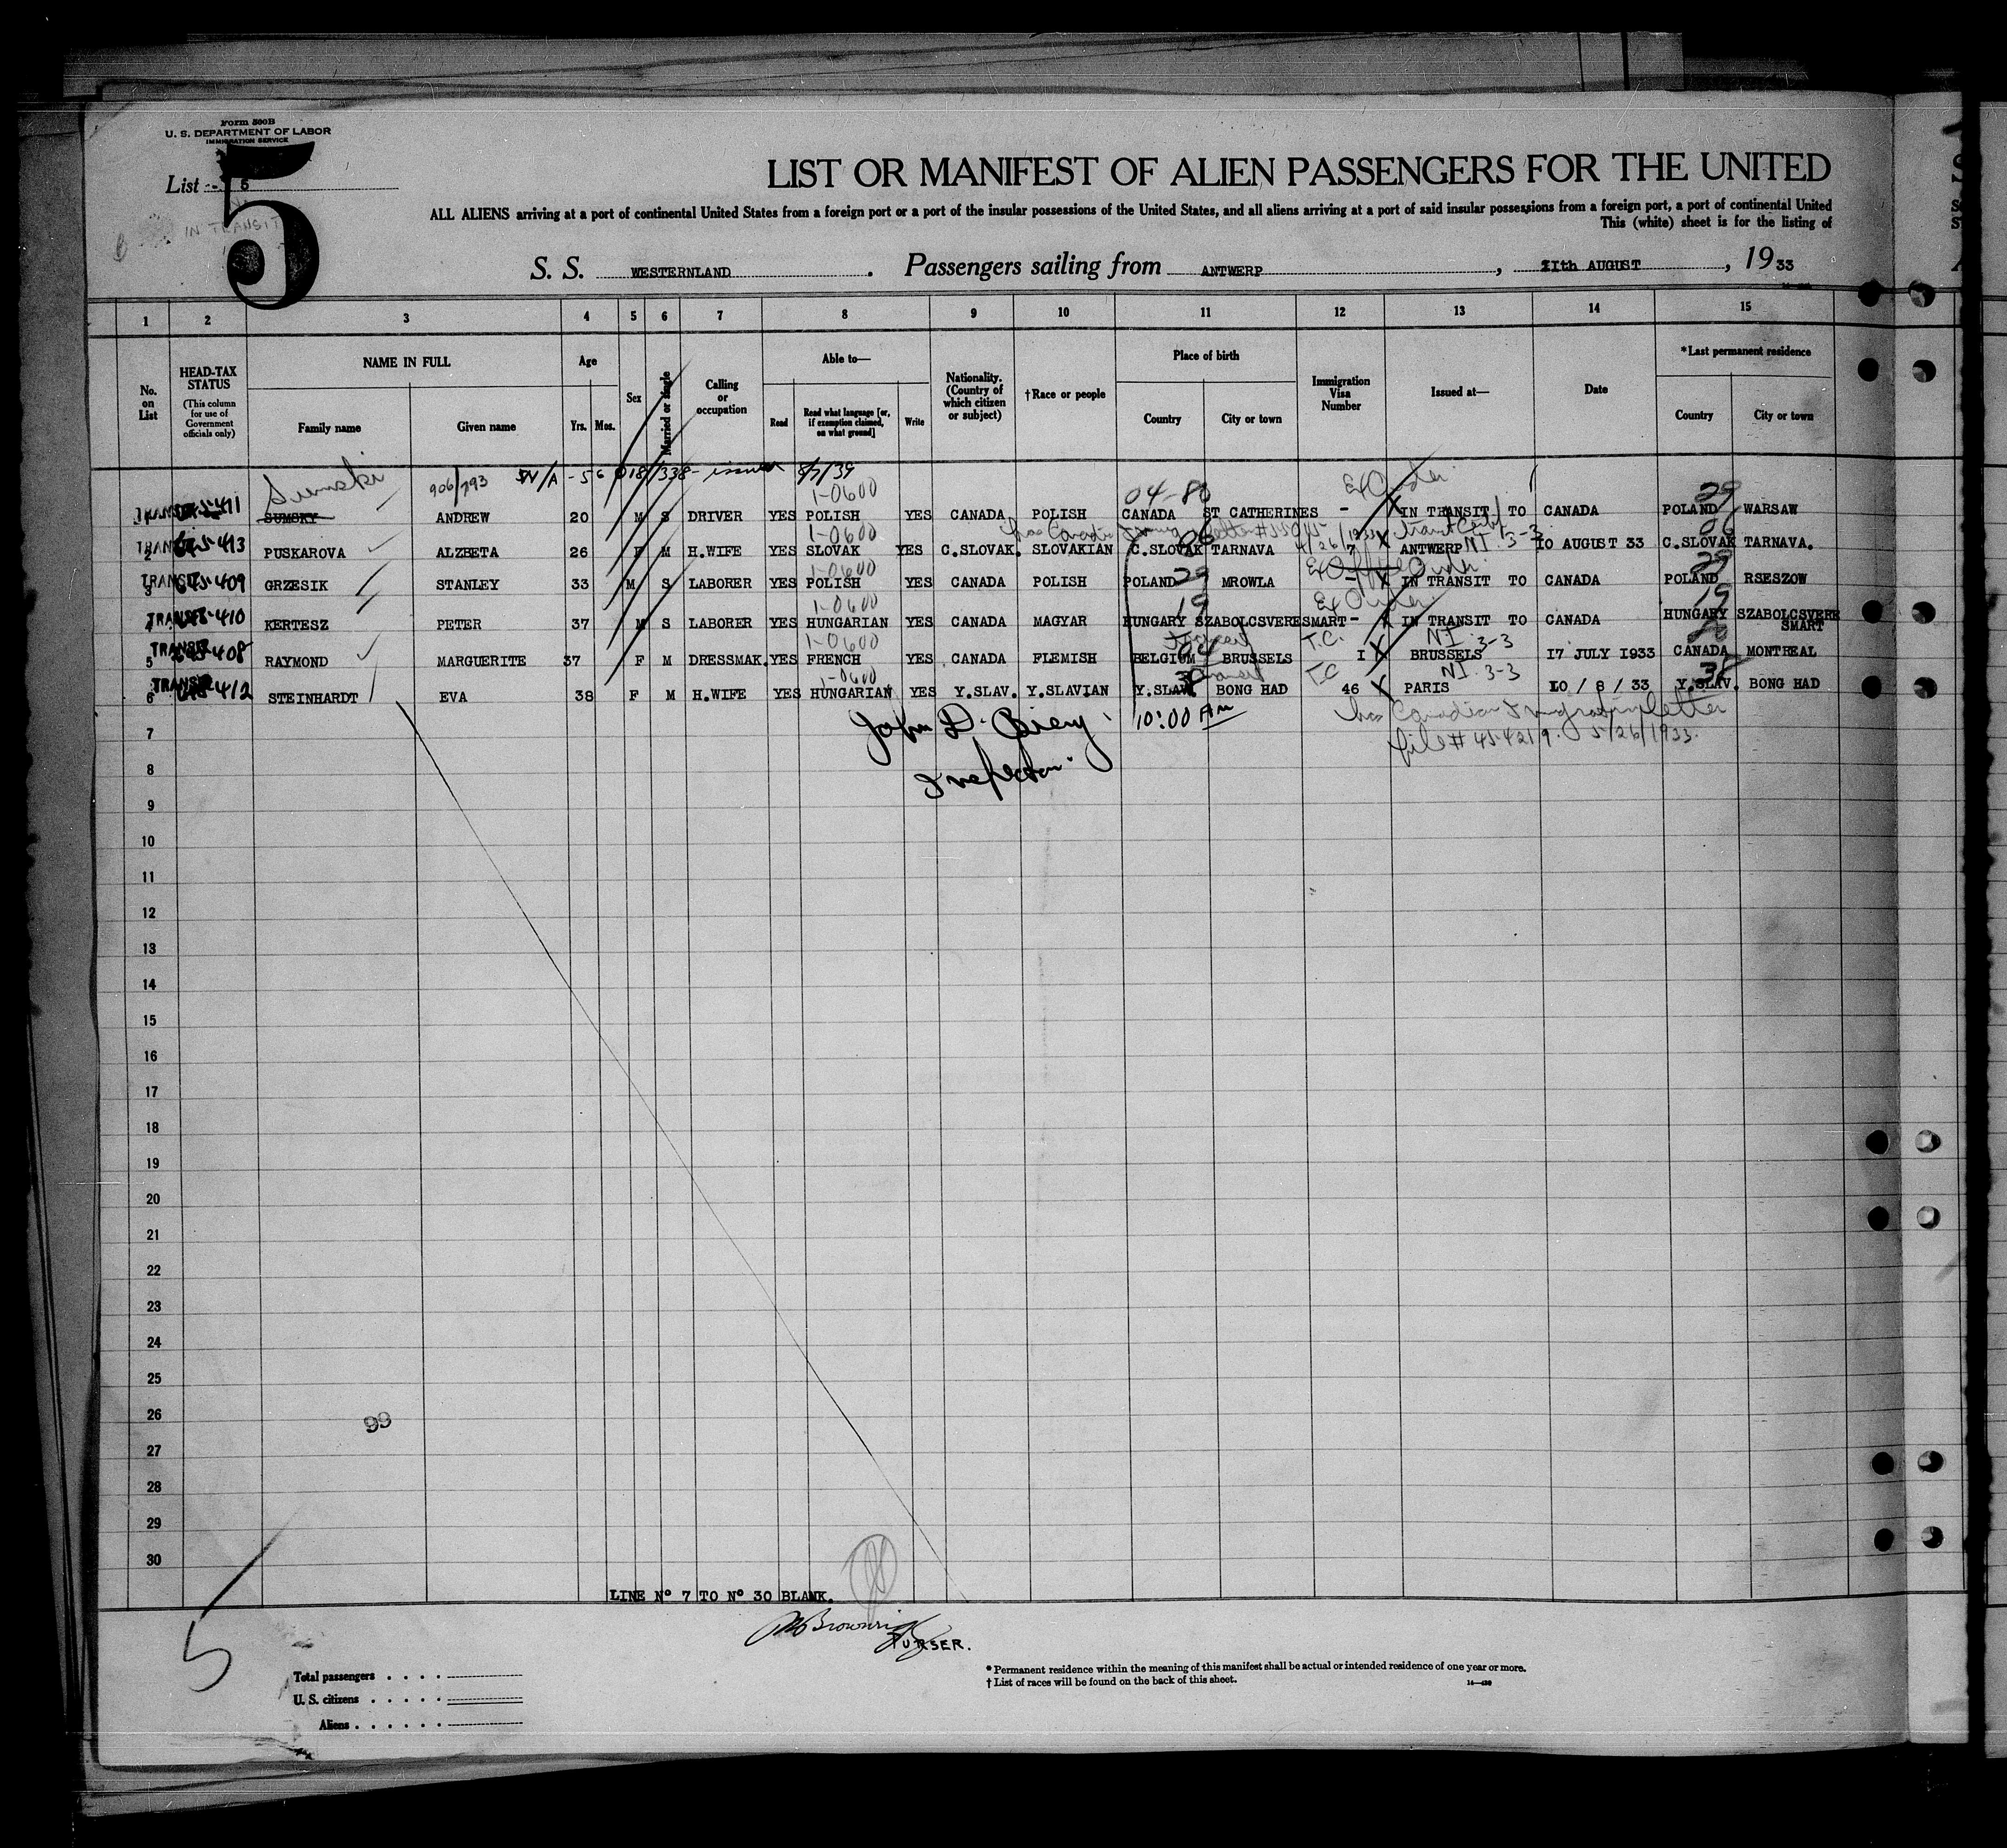 Form 500B
U. S. DEPARTMENT OF LABOR
IMMIGRATION SERVICE
List 5
5
IN TRANSIT
LIST OR MANIFEST OF ALIEN PASSENGERS FOR THE UNITED
ALL ALIENS arriving at a port of continental United States from a foreign port or a port of the insular possessions of the United States, and all aliens arriving at a port of said insular possessions from a foreign port, a port of continental United
This (white) sheet is for the listing of
S. S. WESTERNLAND. Passengers sailing from ANTWERP, 11th AUGUST, 1933
1 2 3 4 5 6 7 8 9 10 11 12 13 14 15
No. on List
HEAD-TAX STATUS (This column for use of Government officials only)
NAME IN FULL
Family name Given name
Age
Yrs. Mos.
Sex
Married or Single
Calling or occupation
Able to—
Read Read what language [or, if exemption claimed, on what ground] Write
Nationality. (Country of which citizen or subject)
†Race or people
Place of birth
Country City or town
Immigration Visa Number
Issued at—
Date
*Last permanent residence
Country City or town
Sumski 906/793 - issued 8/7/39
1-0600 04-80 Ex Order 29
TRANSIT 411 SUMSKY ANDREW 20 M S DRIVER YES POLISH YES CANADA POLISH CANADA ST CATHERINES - X IN TRANSIT TO CANADA POLAND WARSAW
1-0600 has Canadian Immig letter 4/26/1933 Transit Cert NI 3-3 06
TRANSIT 413 2 PUSKAROVA ALZBETA 26 F M H.WIFE YES SLOVAK YES C.SLOVAK. SLOVAKIAN C.SLOVAK TARNAVA 7 X ANTWERP 10 AUGUST 33 C.SLOVAK TARNAVA.
1-0600 29 Ex Order 29
TRANSIT 409 3 GRZESIK STANLEY 33 M S LABORER YES POLISH YES CANADA POLISH POLAND MROWLA - X IN TRANSIT TO CANADA POLAND RSESZOW
1-0600 19 Ex Order 19
TRANSIT 410 4 KERTESZ PETER 37 M S LABORER YES HUNGARIAN YES CANADA MAGYAR HUNGARY SZABOLCSVERESMART - X IN TRANSIT TO CANADA HUNGARY SZABOLCSVERE SMART
1-0600 04 T.C. NI 3-3
TRANSIT 408 5 RAYMOND MARGUERITE 37 F M DRESSMAK. YES FRENCH YES CANADA FLEMISH BELGIUM BRUSSELS 1 X BRUSSELS 17 JULY 1933 CANADA MONTREAL
1-0600 T.C NI 3-3 38
TRANSIT 412 6 STEINHARDT EVA 38 F M H.WIFE YES HUNGARIAN YES Y.SLAV. Y.SLAVIAN Y.SLAV. BONG HAD 46 X PARIS 10 / 8 / 33 Y.SLAV. BONG HAD
John D. 10:00 AM has Canadian Immigration letter
Inspector. file # 454219. 5/26/1933.
7
8
9
10
11
12
13
14
15
16
17
18
19
20
21
22
23
24
25
26
99
27
28
29
30
LINE Nº 7 TO Nº 30 BLANK.
PURSER.
5
Total passengers
U. S. citizens
Aliens
* Permanent residence within the meaning of this manifest shall be actual or intended residence of one year or more.
† List of races will be found on the back of this sheet.